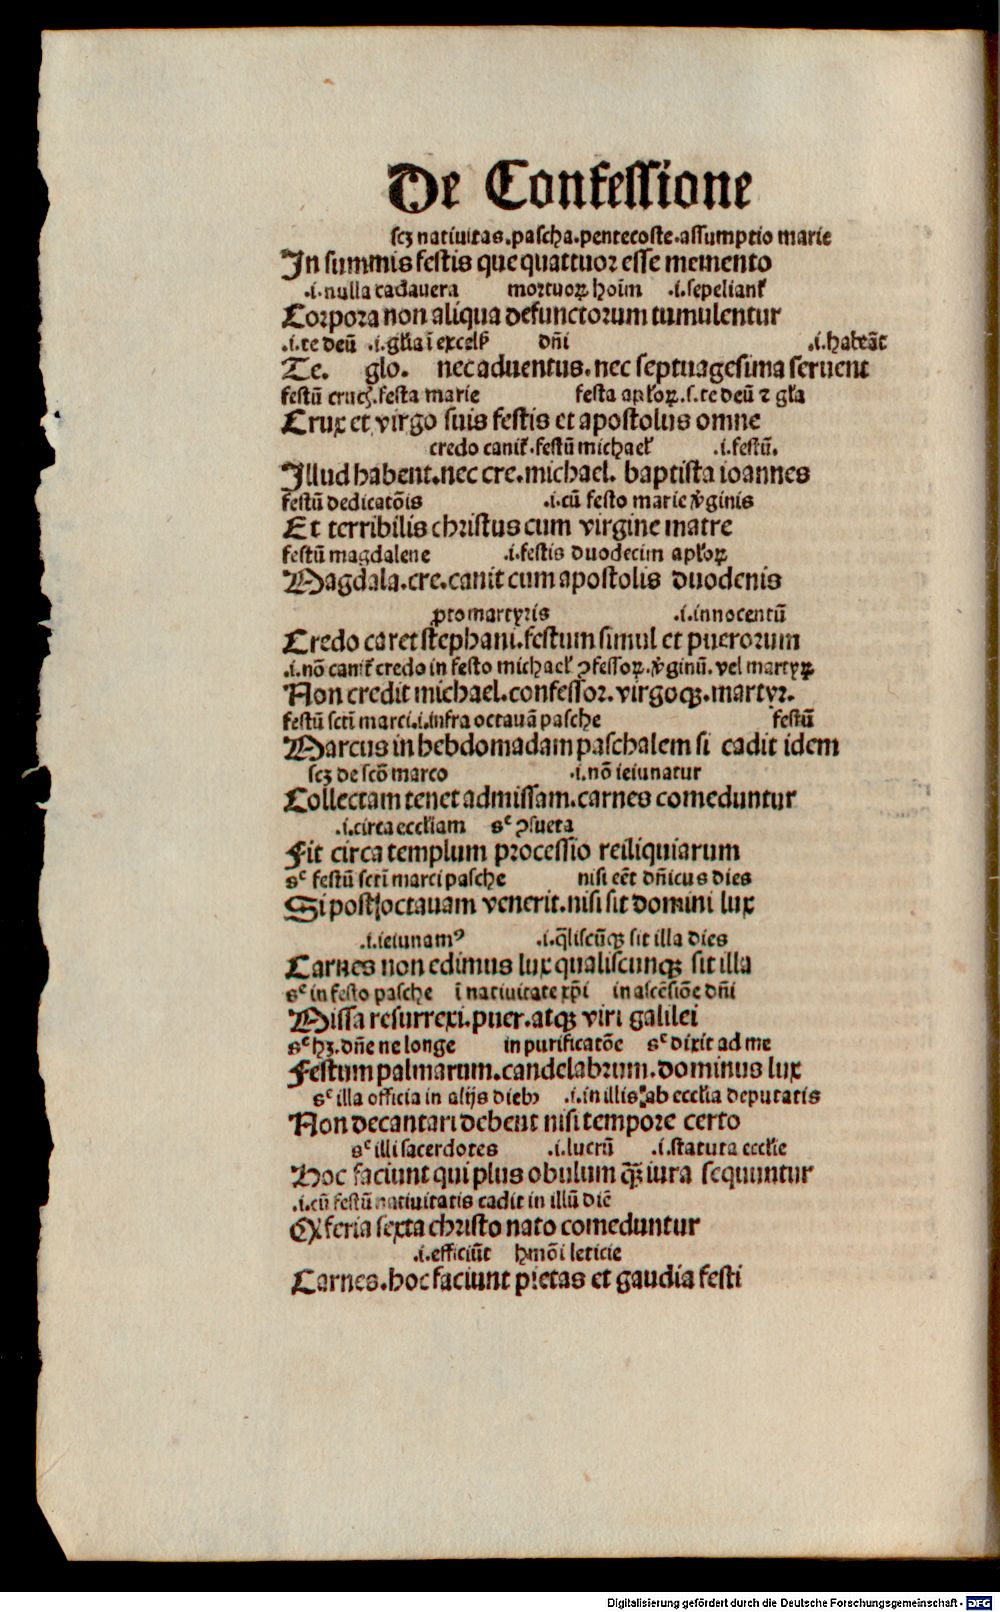 De Confessione
scꝫ natiuitas.pascha.pentecoste.assumptio marie
In summis festis que quattuor esse memento
.i.nulla cadauera mortuoꝝ hoīm .i.sepeliant᷑
Corpora non aliqua defunctorum tumulentur
.i.te deū .i.gl̄ia ī excelſ dn̄i .i.habeāt
Te. glo. nec aduentus.nec septuagesima seruent
festū crucꝭ.festa marie festa apl̓oꝝ.s.te deū ⁊ gl̓a
Crux et virgo suis festis et apostolus omne
credo canit᷑.festū michael̓ .i.festū.
Illud habent.nec cre.michael. baptista ioannes
festū dedicatōis .i.cū festo marie v̓ginis
Et terribilis christus cum virgine matre
festū magdalene .i.festis duodecim apl̓oꝝ
Magdala.cre.canit cum apostolis duodenis
ꝓtomartyris .i.innocentū
Credo caret stephani.festum simul et puerorum
.i.nō canit᷑ credo in festo michael̓ ꝯfessoꝝ.v̓ginū.vel martyꝝ
Non credit michael.confessor.virgoqꝫ.martyr.
festū sct̄i marci.i.infra octauā pasche festū
Marcus in hebdomadam paschalem si cadit idem
scꝫ de scō marco .i.nō ieiunatur
Collectam tenet admissam.carnes comeduntur
.i.circa eccl̓iam sᶜ ꝯsueta
Fit circa templum processio reiliquiarum
sᶜ festū sct̄i marci pasche nisi eēt dn̄icus dies
Si post octauam venerit.nisi sit domini lux
.i.ieiunamꝰ .i.q̄liscūqꝫ sit illa dies
Carnes non edimus lux qualiscunqꝫ sit illa
sᶜ in festo pasche ī natiuitate xp̄i in ascēsiōe dn̄i
Missa resurrexi.puer.atqꝫ viri galilei
sᶜ hꝫ.dn̄e ne longe in purificatōe sᶜ dixit ad me
Festum palmarum.candelabrum.dominus lux
sᶜ illa officia in alijs diebꝰ .i.in illis ab eccl̓ia deputatis
Non decantari debent nisi tempore certo
sᶜ illi sacerdotes .i.lucrū .i.statuta eccl̓ie
Hoc faciunt qui plus obulum q̄ꝫ iura sequuntur
.i.cū festū natiuitatis cadit in illū diē
Ex feria sexta christo nato comeduntur
.i.efficiūt hmōi leticie
Carnes.hoc faciunt pietas et gaudia festi
Digitalisierung gefördert durch die Deutsche Forschungsgemeinschaft - DFG